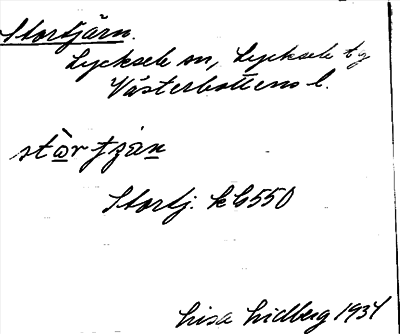 Stortjärn.
Lycksele sn, Lycksele tg
Västerbottens l.
stὼr tjä̀n
Stortj. k 6550
Lisa Lidberg 1934